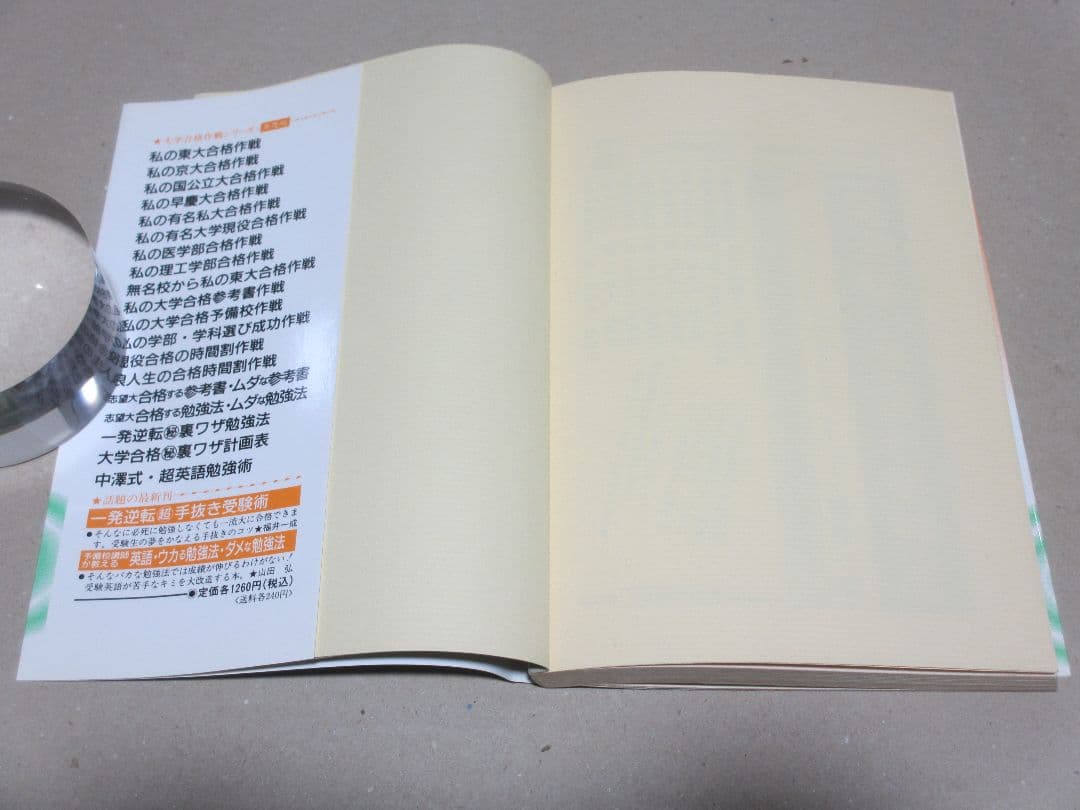 ★大学合格作戦シリーズ
私の東大合格作戦
私の京大合格作戦
私の国公立大合格作戦
私の早慶大合格作戦
私の有名私大合格作戦
私の有名大学現役合格作戦
私の医学部合格作戦
私の理工学部合格作戦
無名校から私の東大合格作戦
私の大学合格参考書作戦
私の大学合格予備校作戦
私の学部・学科選び成功作戦
現役合格の時間割作戦
浪人生の合格時間割作戦
志望大合格する参考書・ムダな参考書
志望大合格する勉強法・ムダな勉強法
一発逆転㊙裏ワザ勉強法
大学合格㊙裏ワザ計画表
中澤式・超英語勉強術
★話題の最新刊
一発逆転超手抜き受験術
●そんなに必死に勉強しなくても一流大に合格できます。
受験生の夢をかなえる手抜きのコツ★福井一成
予備校講師が教える 英語・ウカる勉強法・ダメな勉強法
●そんなバカな勉強法では成績が伸びるわけがない!
受験英語が苦手なキミを大改造する本。★山田 弘
●定価各1260円(税込)
〈送料各240円〉